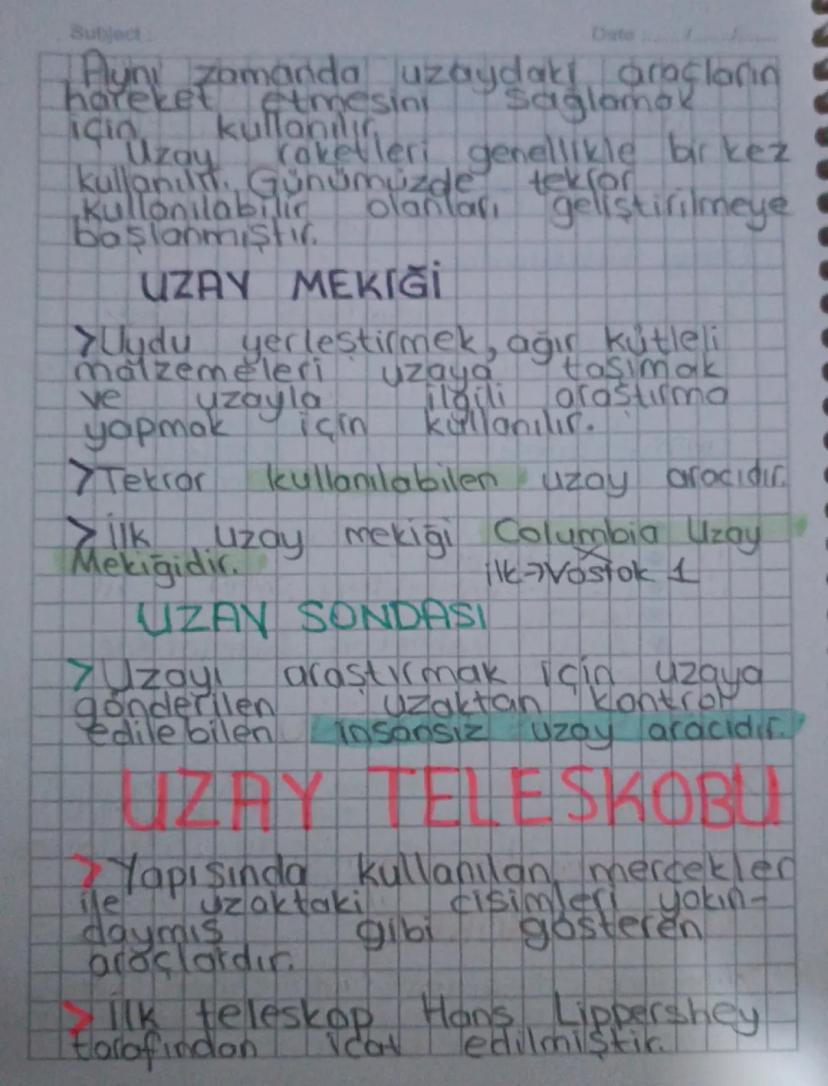 Subject :
Date ....../....../......
Aynı zamanda uzaydaki araçların
hareket etmesini sağlamak
için kullanılır.
Uzay roketleri genellikle bir kez
kullanılır. Günümüzde tekrar
kullanılabilir olanları geliştirilmeye
başlanmıştır.
UZAY MEKİĞİ
>Uydu yerleştirmek, ağır kütleli
malzemeleri uzaya taşımak
ve uzayla ilgili araştırma
yapmak için kullanılır.
>Tekrar kullanılabilen uzay aracıdır.
>İlk uzay mekiği Columbia Uzay
Mekiğidir.
ilk→Vostok 1
UZAY SONDASI
>Uzayı araştırmak için uzaya
gönderilen uzaktan kontrol
edilebilen insansız uzay aracıdır.
UZAY TELESKOBU
>Yapısında kullanılan mercekler
ile uzaktaki cisimleri yakın-
daymış gibi gösteren
araçlardır.
>İlk teleskop Hans Lippershey
tarafından icat edilmiştir.